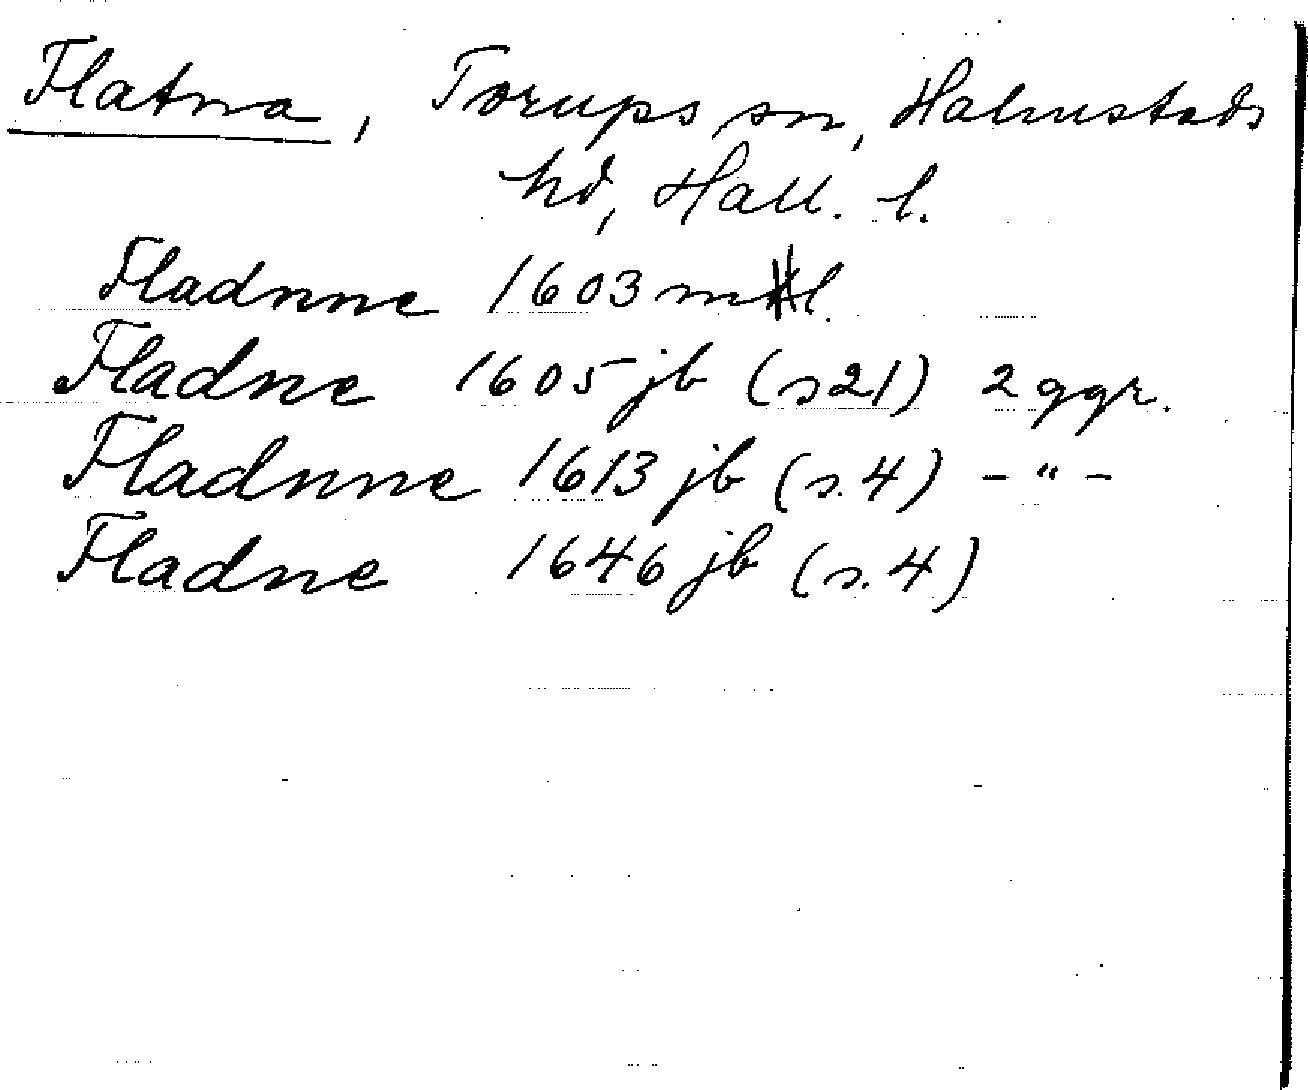 Flatna, Torups sn, Halmstads
hd, Hall. l.
Fladnne 1603 mtl.
Fladne 1605 jb (s 21) 2 ggr.
Fladnne 1613 jb (s. 4) - " -
Fladne 1646 jb (s. 4)